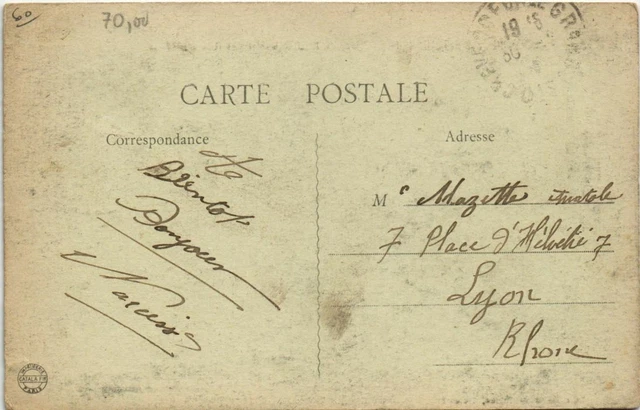 60
70,00
CARTE POSTALE
Correspondance
A
Bientot
Bonjour
Narcisse
Adresse
M e Mazette Anatole
7 Place d'Helvétie 7
Lyon
Rhone
PARIS